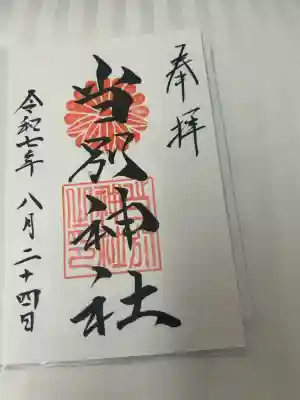 奉拝
当別神社
令和七年 八月二十四日